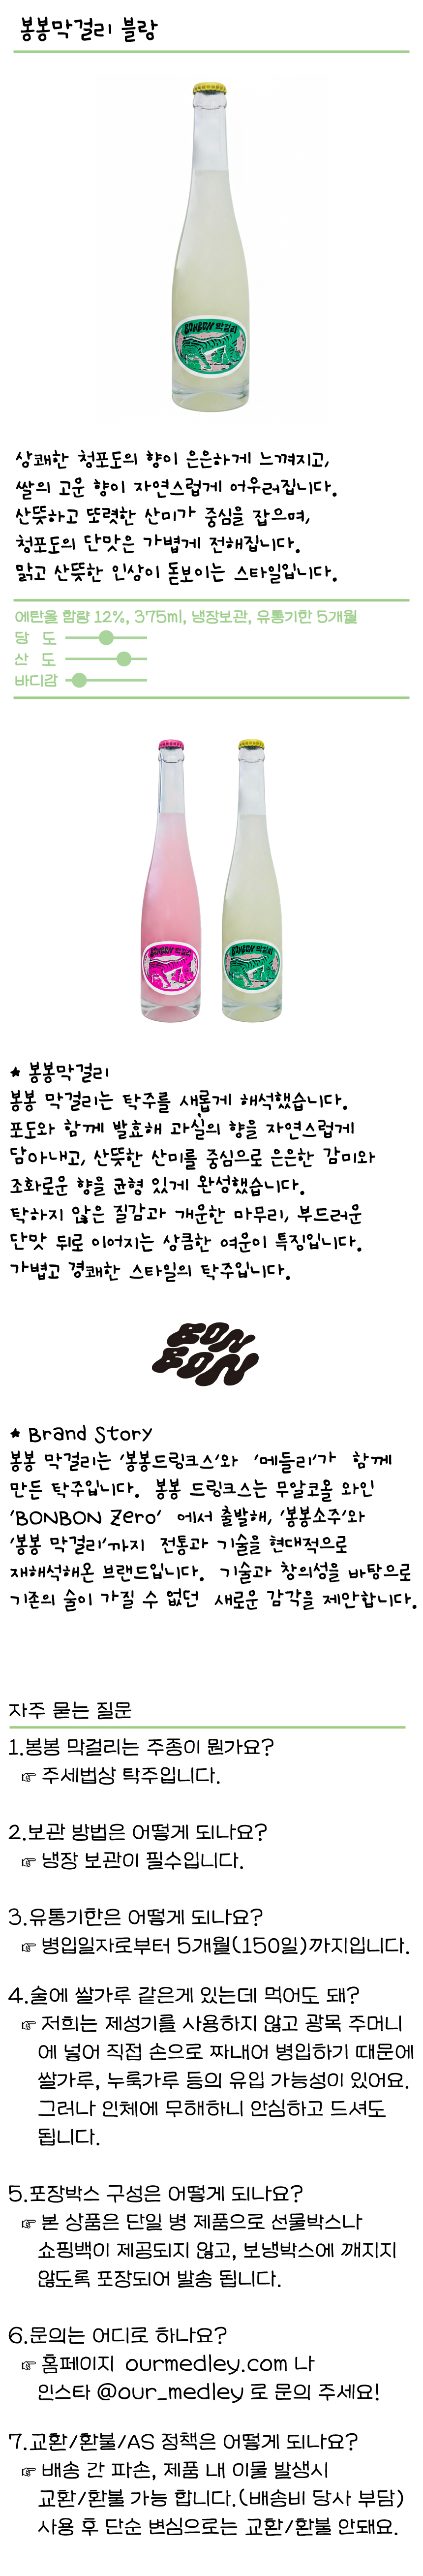 봉봉막걸리 블랑
BONBON 막걸리
상쾌한 청포도의 향이 은은하게 느껴지고,
쌀의 고운 향이 자연스럽게 어우러집니다.
산뜻하고 또렷한 산미가 중심을 잡으며,
청포도의 단맛은 가볍게 전해집니다.
맑고 산뜻한 인상이 돋보이는 스타일입니다.
에탄올 함량 12%, 375ml, 냉장보관, 유통기한 5개월
당 도
산 도
바디감
BONBON 막걸리 BONBON 막걸리
* 봉봉막걸리
봉봉 막걸리는 탁주를 새롭게 해석했습니다.
포도와 함께 발효해 과실의 향을 자연스럽게
담아내고, 산뜻한 산미를 중심으로 은은한 감미와
조화로운 향을 균형 있게 완성했습니다.
탁하지 않은 질감과 개운한 마무리, 부드러운
단맛 뒤로 이어지는 상큼한 여운이 특징입니다.
가볍고 경쾌한 스타일의 탁주입니다.
BON
BON
* Brand Story
봉봉 막걸리는 '봉봉드링크스'와 '메들리'가 함께
만든 탁주입니다. 봉봉 드링크스는 무알코올 와인
'BONBON Zero' 에서 출발해, '봉봉소주'와
'봉봉 막걸리'까지 전통과 기술을 현대적으로
재해석해온 브랜드입니다. 기술과 창의성을 바탕으로
기존의 술이 가질 수 없던 새로운 감각을 제안합니다.
자주 묻는 질문
1.봉봉 막걸리는 주종이 뭔가요?
☞ 주세법상 탁주입니다.
2.보관 방법은 어떻게 되나요?
☞ 냉장 보관이 필수입니다.
3.유통기한은 어떻게 되나요?
☞ 병입일자로부터 5개월(150일)까지입니다.
4.술에 쌀가루 같은게 있는데 먹어도 돼?
☞ 저희는 제성기를 사용하지 않고 광목 주머니
에 넣어 직접 손으로 짜내어 병입하기 때문에
쌀가루, 누룩가루 등의 유입 가능성이 있어요.
그러나 인체에 무해하니 안심하고 드셔도
됩니다.
5.포장박스 구성은 어떻게 되나요?
☞ 본 상품은 단일 병 제품으로 선물박스나
쇼핑백이 제공되지 않고, 보냉박스에 깨지지
않도록 포장되어 발송 됩니다.
6.문의는 어디로 하나요?
☞ 홈페이지 ourmedley.com 나
인스타 @our_medley 로 문의 주세요!
7.교환/환불/AS 정책은 어떻게 되나요?
☞ 배송 간 파손, 제품 내 이물 발생시
교환/환불 가능 합니다.(배송비 당사 부담)
사용 후 단순 변심으로는 교환/환불 안돼요.